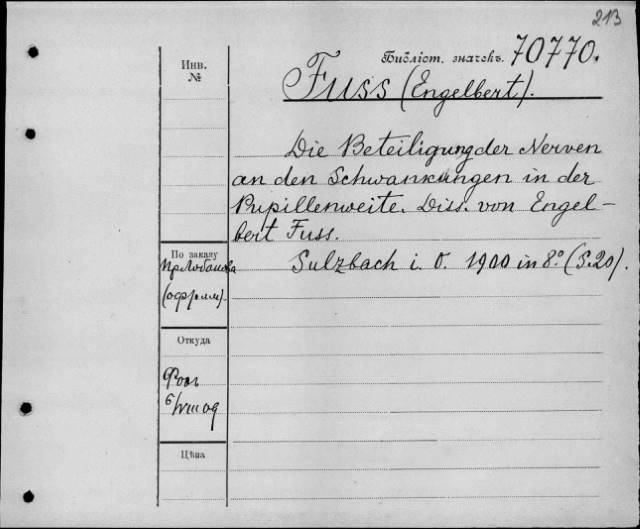 213
Библіот. значекъ. 70770.
Инв.
№
Fuss (Engelbert).
Die Beteiligung der Nerven
an den Schwankungen in der
Pupillenweite. Diss. von Engel-
bert Fuss.
Sulzbach i. O. 1900 in 8.º (S.20).
По заказу
Пр.Лобанова
Откуда
6/VIII 09
Цѣна